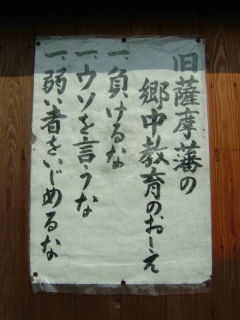 旧薩摩藩の
郷中教育のおしえ
一、負けるな
一、ウソを言うな
一、弱い者をいじめるな